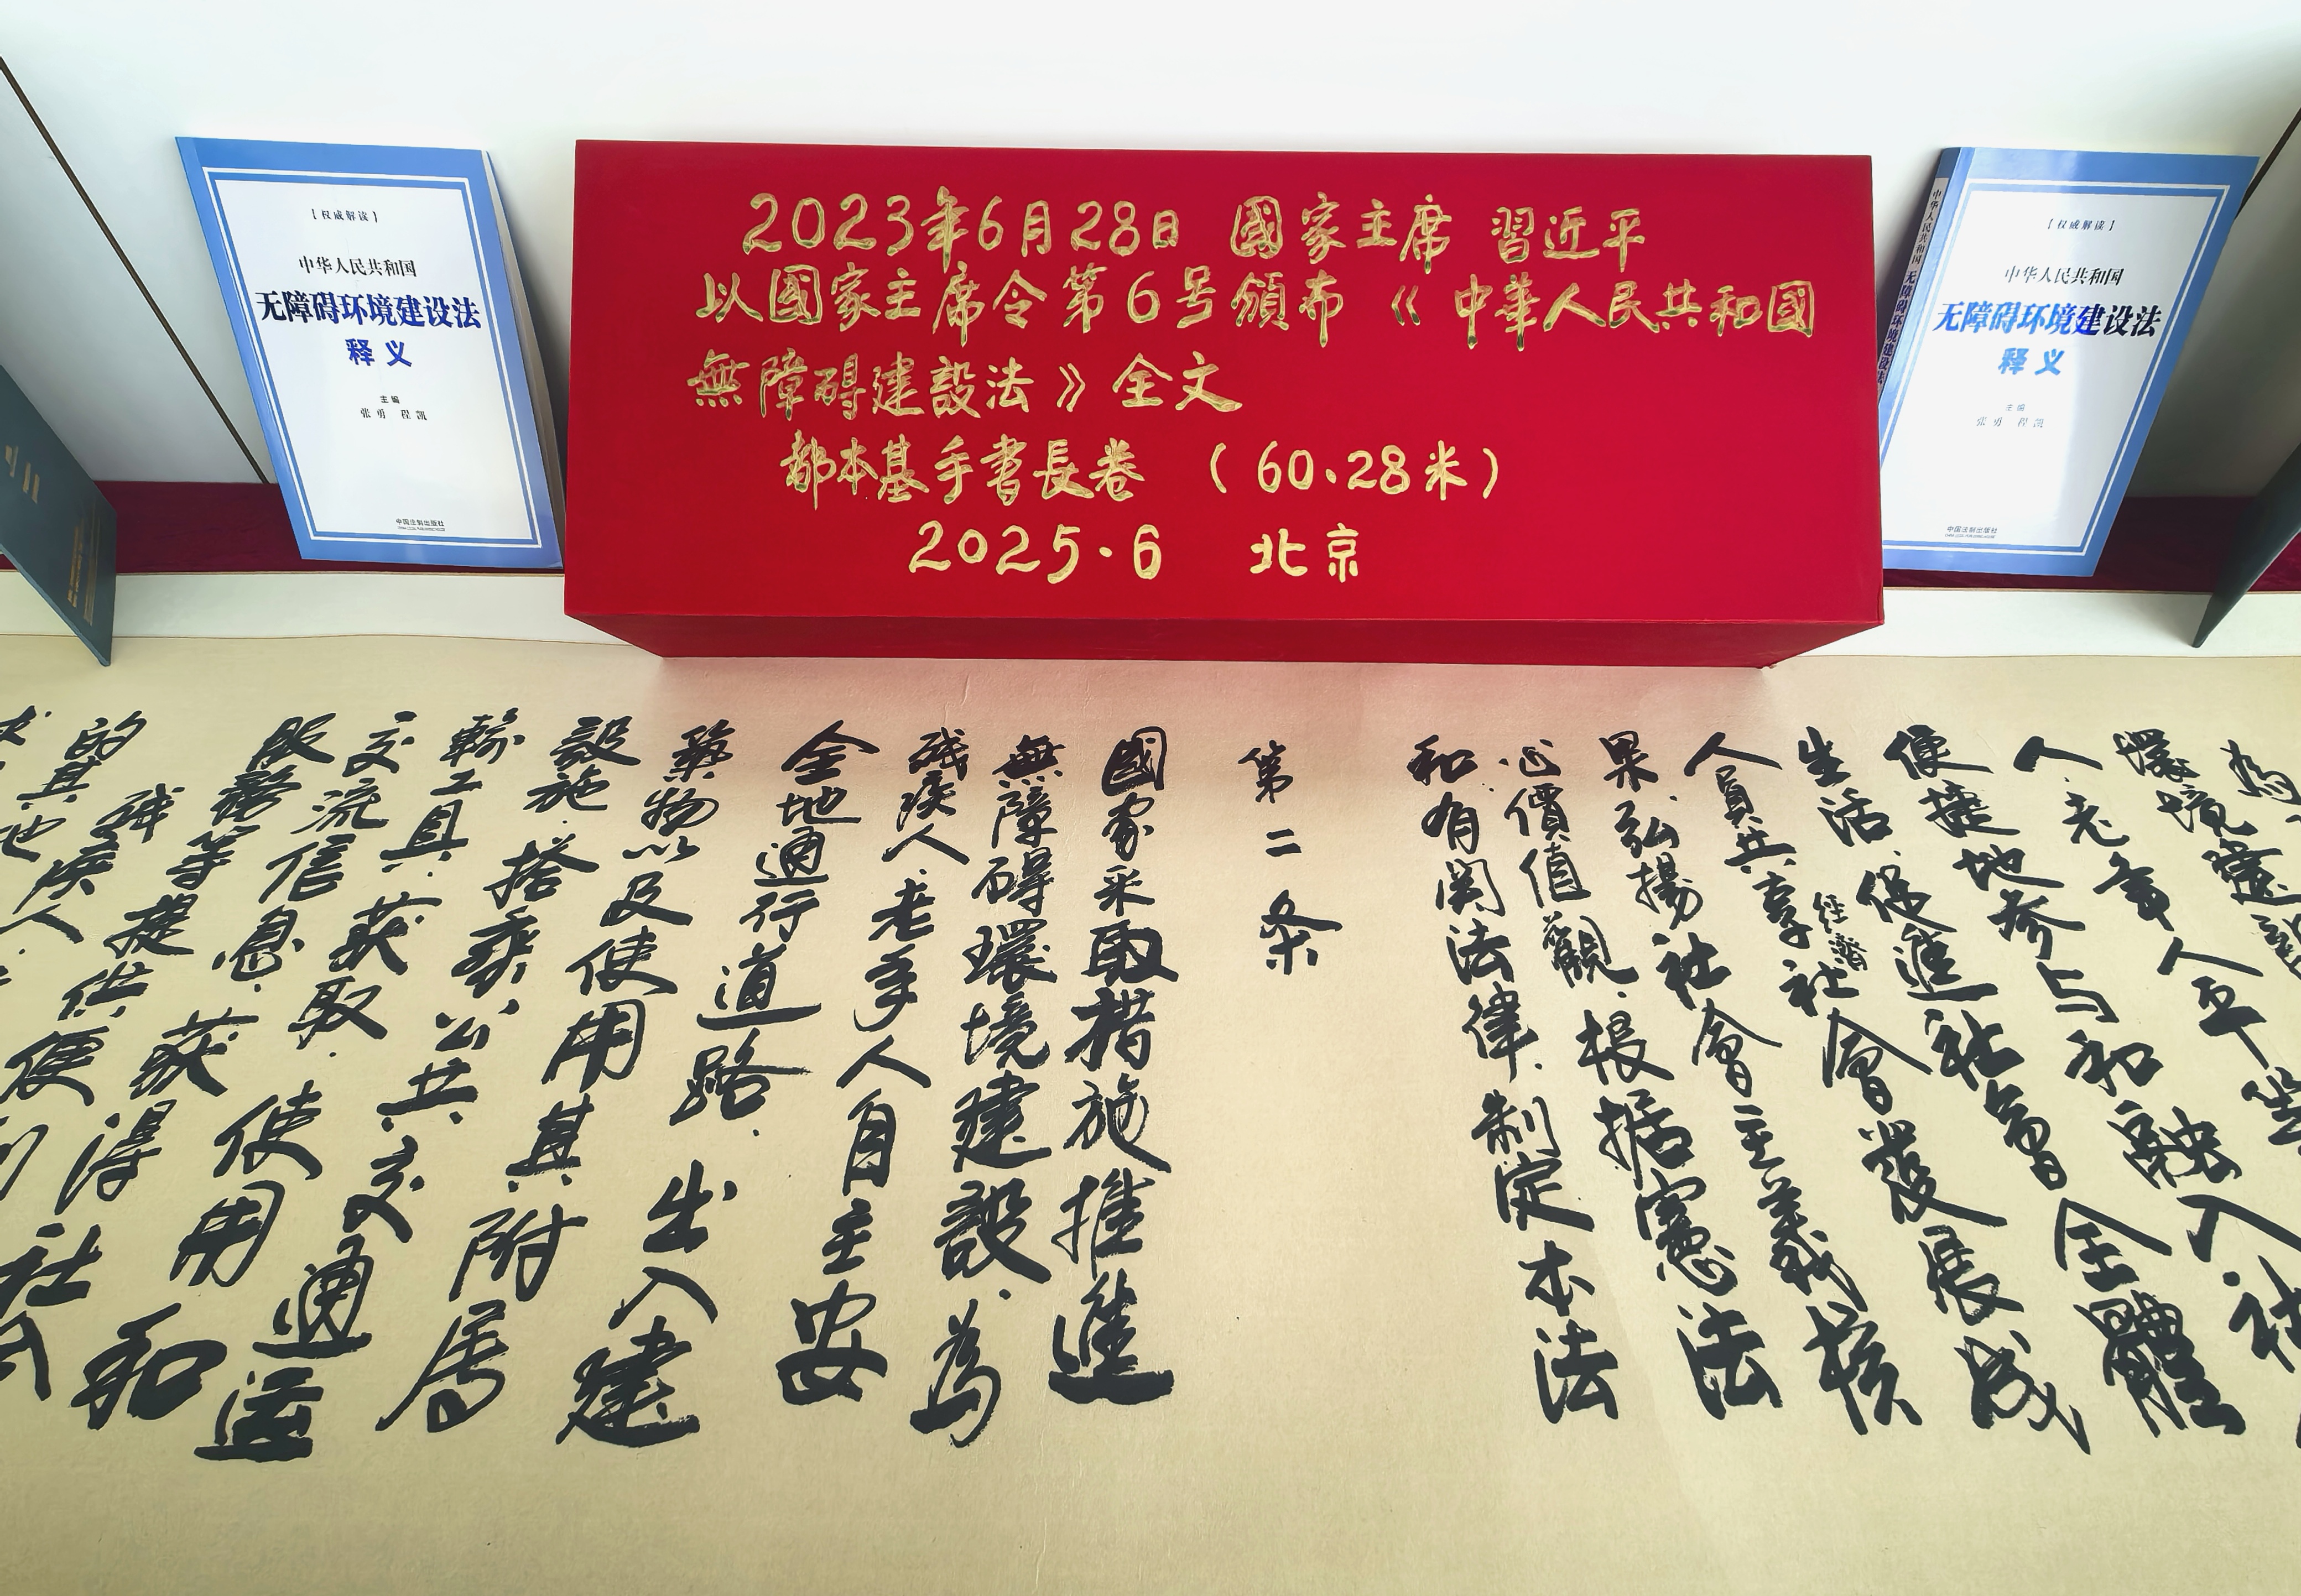 【权威解读】
中华人民共和国
无障碍环境建设法
释义
主编
张勇 程凯
中国法制出版社
2023年6月28日 國家主席 習近平
以國家主席令第6号頒布《中華人民共和國
無障碍建設法》全文
都本基手書長卷（60.28米）
2025.6 北京
中华人民共和国 无障碍环境建设法
【权威解读】
中华人民共和国
无障碍环境建设法
释义
主编
张勇 程凯
中国法制出版社
為
環境建設
人.老年人平等
便捷地参与和融入社
生活.促進社會全體
人員共享經濟社會發展成
果.弘揚社會主義核
心價值觀.根据憲法
和有関法律.制定本法
第二条
國家采取措施推進
無障碍環境建設.為
残疾人.老年人自主安
全地通行道路.出入建
築物以及使用其附属
設施.搭乘公共交通運
輸工具.获取.使用和
交流信息.获得社
服務等提供便利
残疾人.
的其他